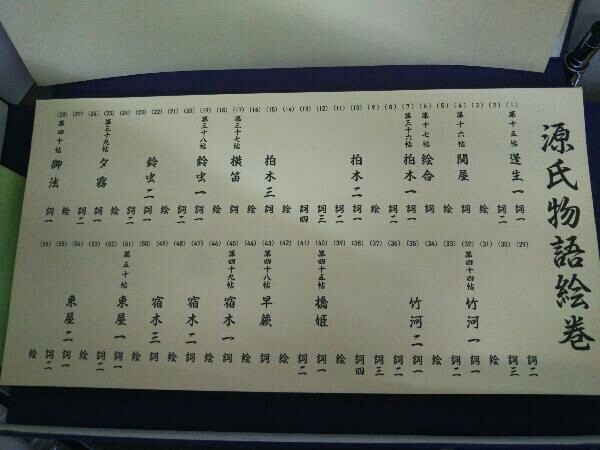 源氏物語絵巻
(1) 第十五帖 蓬生一 詞一
(2) 詞二
(3) 絵
(4) 第十六帖 関屋 詞
(5) 絵
(6) 第十七帖 絵合 詞
(7) 第三十六帖 柏木一 詞一
(8) 詞二
(9) 絵
(10) 柏木二 詞一
(11) 詞二
(12) 詞三
(13) 詞四
(14) 絵
(15) 柏木三 詞
(16) 絵
(17) 第三十七帖 横笛 詞
(18) 絵
(19) 第三十八帖 鈴虫一 詞一
(20) 詞二
(21) 絵
(22) 鈴虫二 詞一
(23) 詞二
(24) 絵
(25) 第三十九帖 夕霧 詞一
(26) 詞二
(27) 絵
(28) 第四十帖 御法 詞一
(29) 詞二
(30) 詞三
(31) 絵
(32) 第四十四帖 竹河一 詞一
(33) 詞二
(34) 絵
(35) 竹河二 詞一
(36) 詞二
(37) 詞三
(38) 詞四
(39) 絵
(40) 第四十五帖 橋姫 詞一
(41) 詞二
(42) 絵
(43) 第四十八帖 早蕨 詞
(44) 絵
(45) 第四十九帖 宿木一 詞
(46) 絵
(47) 宿木二 詞
(48) 絵
(49) 宿木三 詞
(50) 絵
(51) 第五十帖 東屋一 詞一
(52) 詞二
(53) 絵
(54) 東屋二 詞一
(55) 詞二
(56) 絵